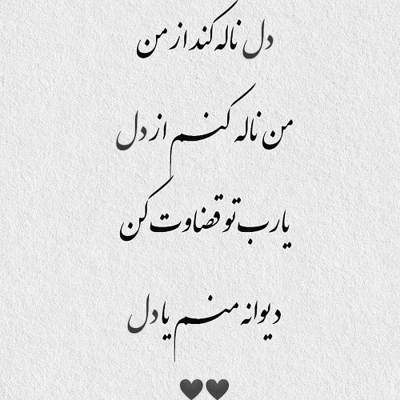 دل ناله کند از من
من ناله کنم از دل
یارب تو قضاوت کن
دیوانه منم یا دل
🖤🖤